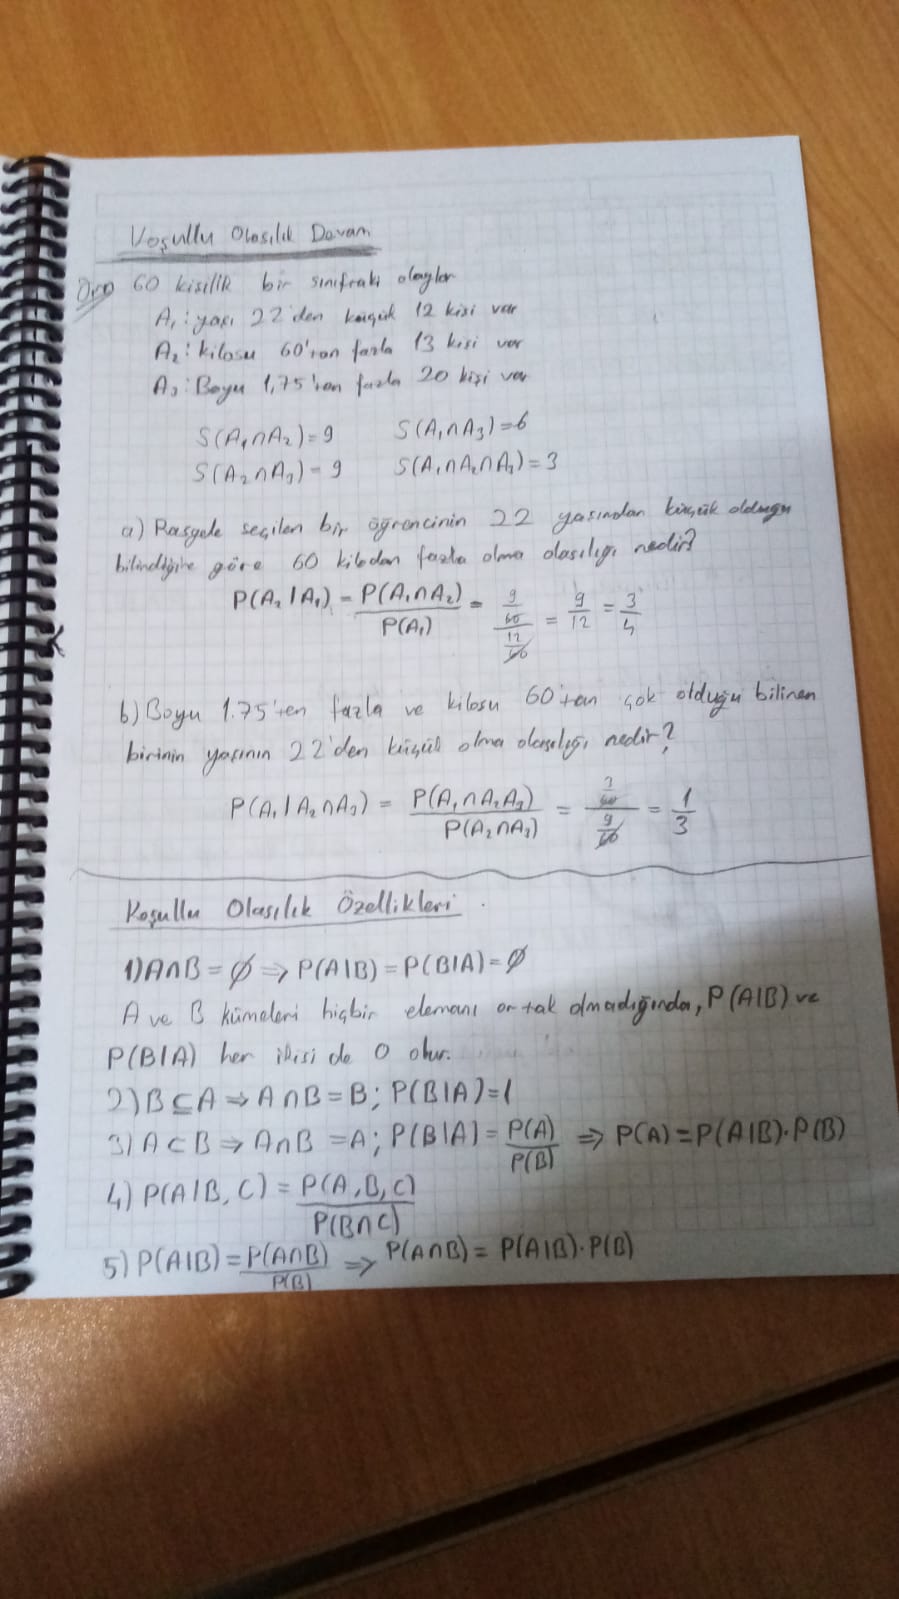 Koşullu Olasılık Devam
Örn 60 kisilik bir sınıftaki olaylar
A₁: yaşı 22'den küçük 12 kisi var
A₂: kilosu 60'tan fazla 13 kisi var
A₃: Boyu 1,75'ten fazla 20 kişi var
S(A₁∩A₂)=9 S(A₁∩A₃)=6
S(A₂∩A₃)=9 S(A₁∩A₂∩A₃)=3
a) Rasgele seçilen bir öğrencinin 22 yasından küçük olduğu
bilindiğine göre 60 kilodan fazla olma olasılığı nedir?
P(A₂|A₁) = P(A₁∩A₂)/P(A₁) = (9/60)/(12/60) = 9/12 = 3/4
b) Boyu 1.75'ten fazla ve kilosu 60'tan çok olduğu bilinen
birinin yasının 22'den küçük olma olasılığı nedir?
P(A₁|A₂∩A₃) = P(A₁∩A₂A₃)/P(A₂∩A₃) = (3/60)/(9/60) = 1/3
Koşullu Olasılık Özellikleri
1) A∩B = ∅ ⇒ P(A|B) = P(B|A) = ∅
A ve B kümeleri hiçbir elemanı ortak olmadığında, P(A|B) ve
P(B|A) her ikisi de 0 olur.
2) B⊆A ⇒ A∩B = B; P(B|A)=1
3) A⊂B ⇒ A∩B = A; P(B|A) = P(A)/P(B) ⇒ P(A) = P(A|B)·P(B)
4) P(A|B, C) = P(A,B,C)/P(B∩C)
5) P(A|B) = P(A∩B)/P(B) ⇒ P(A∩B) = P(A|B)·P(B)